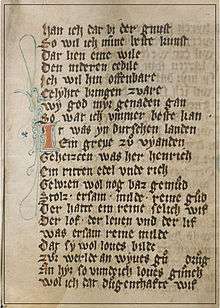 han ich dar bi der gunst
So wil ich mine beste kunst
Dar hen eine wile
Den mideren
Ich wil hin offenbare
bringen zware
wy god myr genaden gan
So war ich ymmer beste kan
Ir was yn dutschen landen
Ein greue zu vyanden
Geheizen was her henrich
Ein ritter edel vnde rich
Geboren wol noz bar gemud
Stolz ersam milde reine gud
Der hatte ein reine selich wif
Der lof der leuen vnd der lif
was ersam reine milde
Dar sy wol loues bilde
zu werlde an wyues
An hys so vunde ich loues
wol ich dar dugenthafte wif